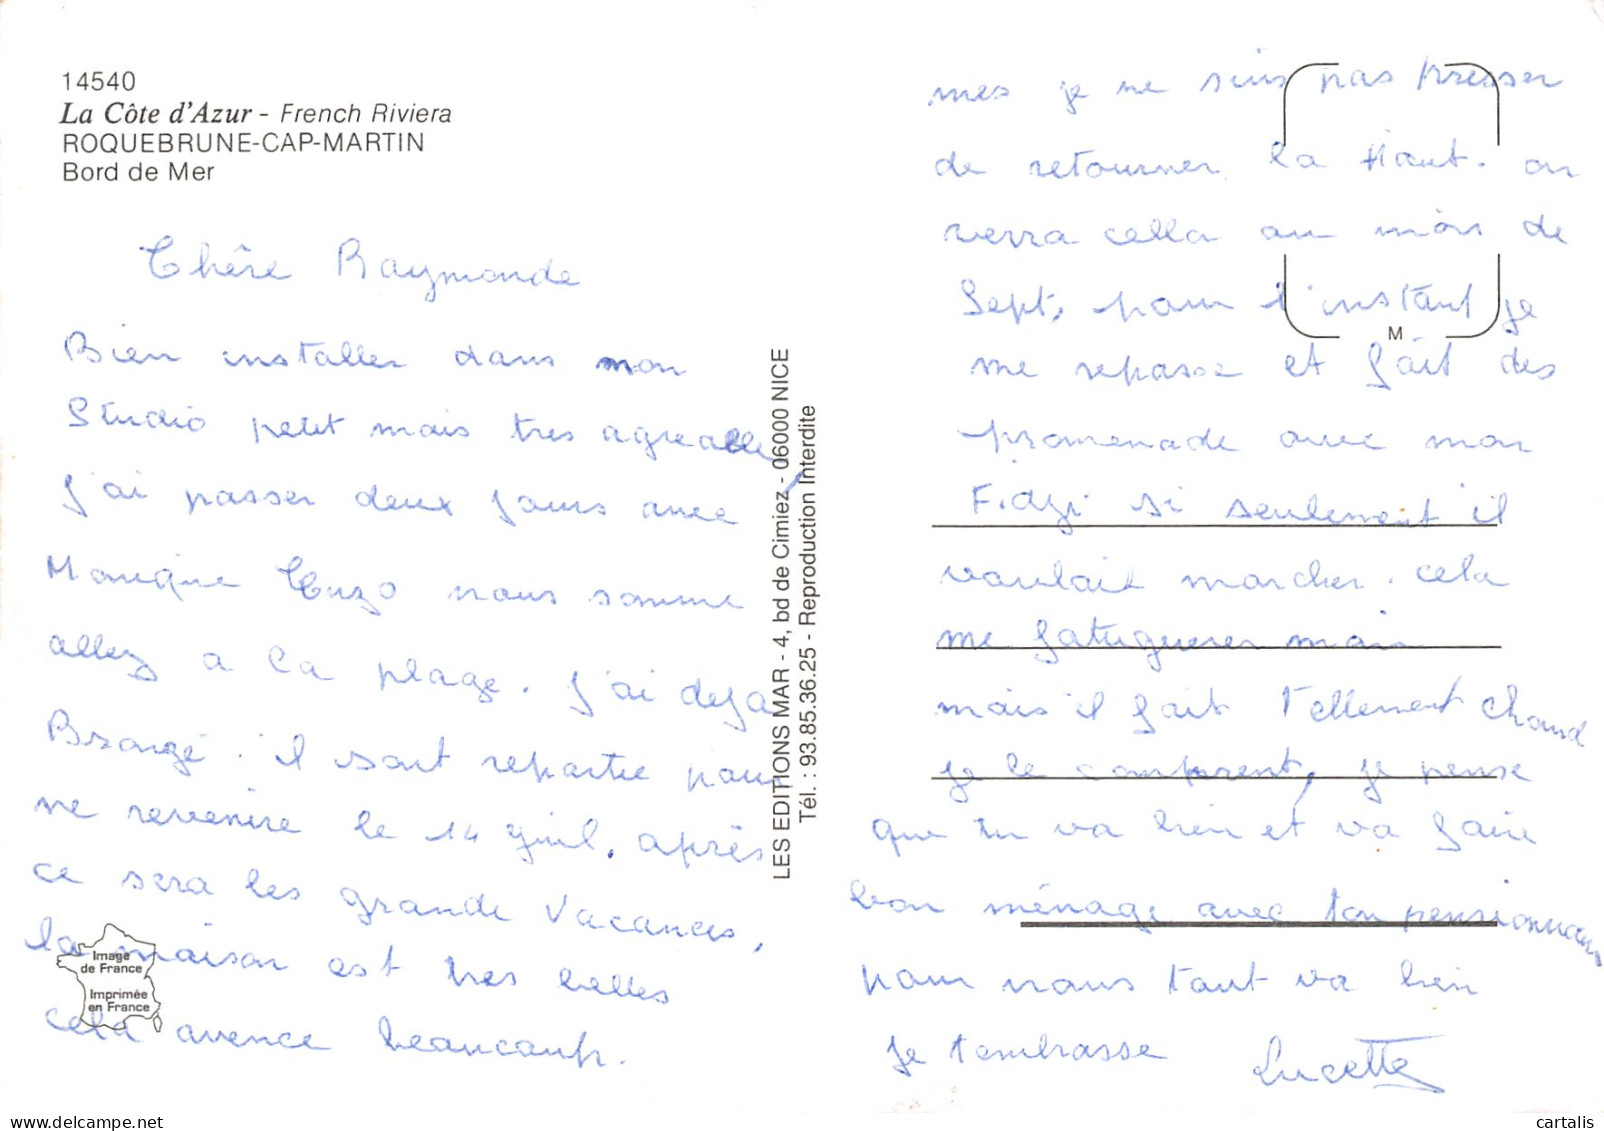 14540
La Côte d'Azur - French Riviera
ROQUEBRUNE-CAP-MARTIN
Bord de Mer
Chère Raymonde
Bien installer dans mon
Studio petit mais tres agreable,
J'ai passer deux jours avec
Monique Enzo nous somme
allez a la plage. J'ai deja
Bronzé. il sont repartie pour
ne revenire le 14 Juil. après
ce sera les grande Vacances,
la maison est tres belles
cela avence beaucoup.
LES EDITIONS MAR - 4, bd de Cimiez - 06000 NICE
Tél. : 93.85.36.25 - Reproduction Interdite
Image
de France
Imprimée
en France
mes je ne suis pas presser
de retourner la Haut. on
verra cella au mois de
Sept, pour l'instant je
M
me repasse et fait des
promenade avec mon
si seulement il
voulait marcher. cela
me fatuguerer mais
mais il fait tellement chaud
je le comprent, je pense
que tu va bien et va faire
bon ménage avec ton pensionnaire
pour nous tout va bien
Je t'embrasse Lucette
cartalis